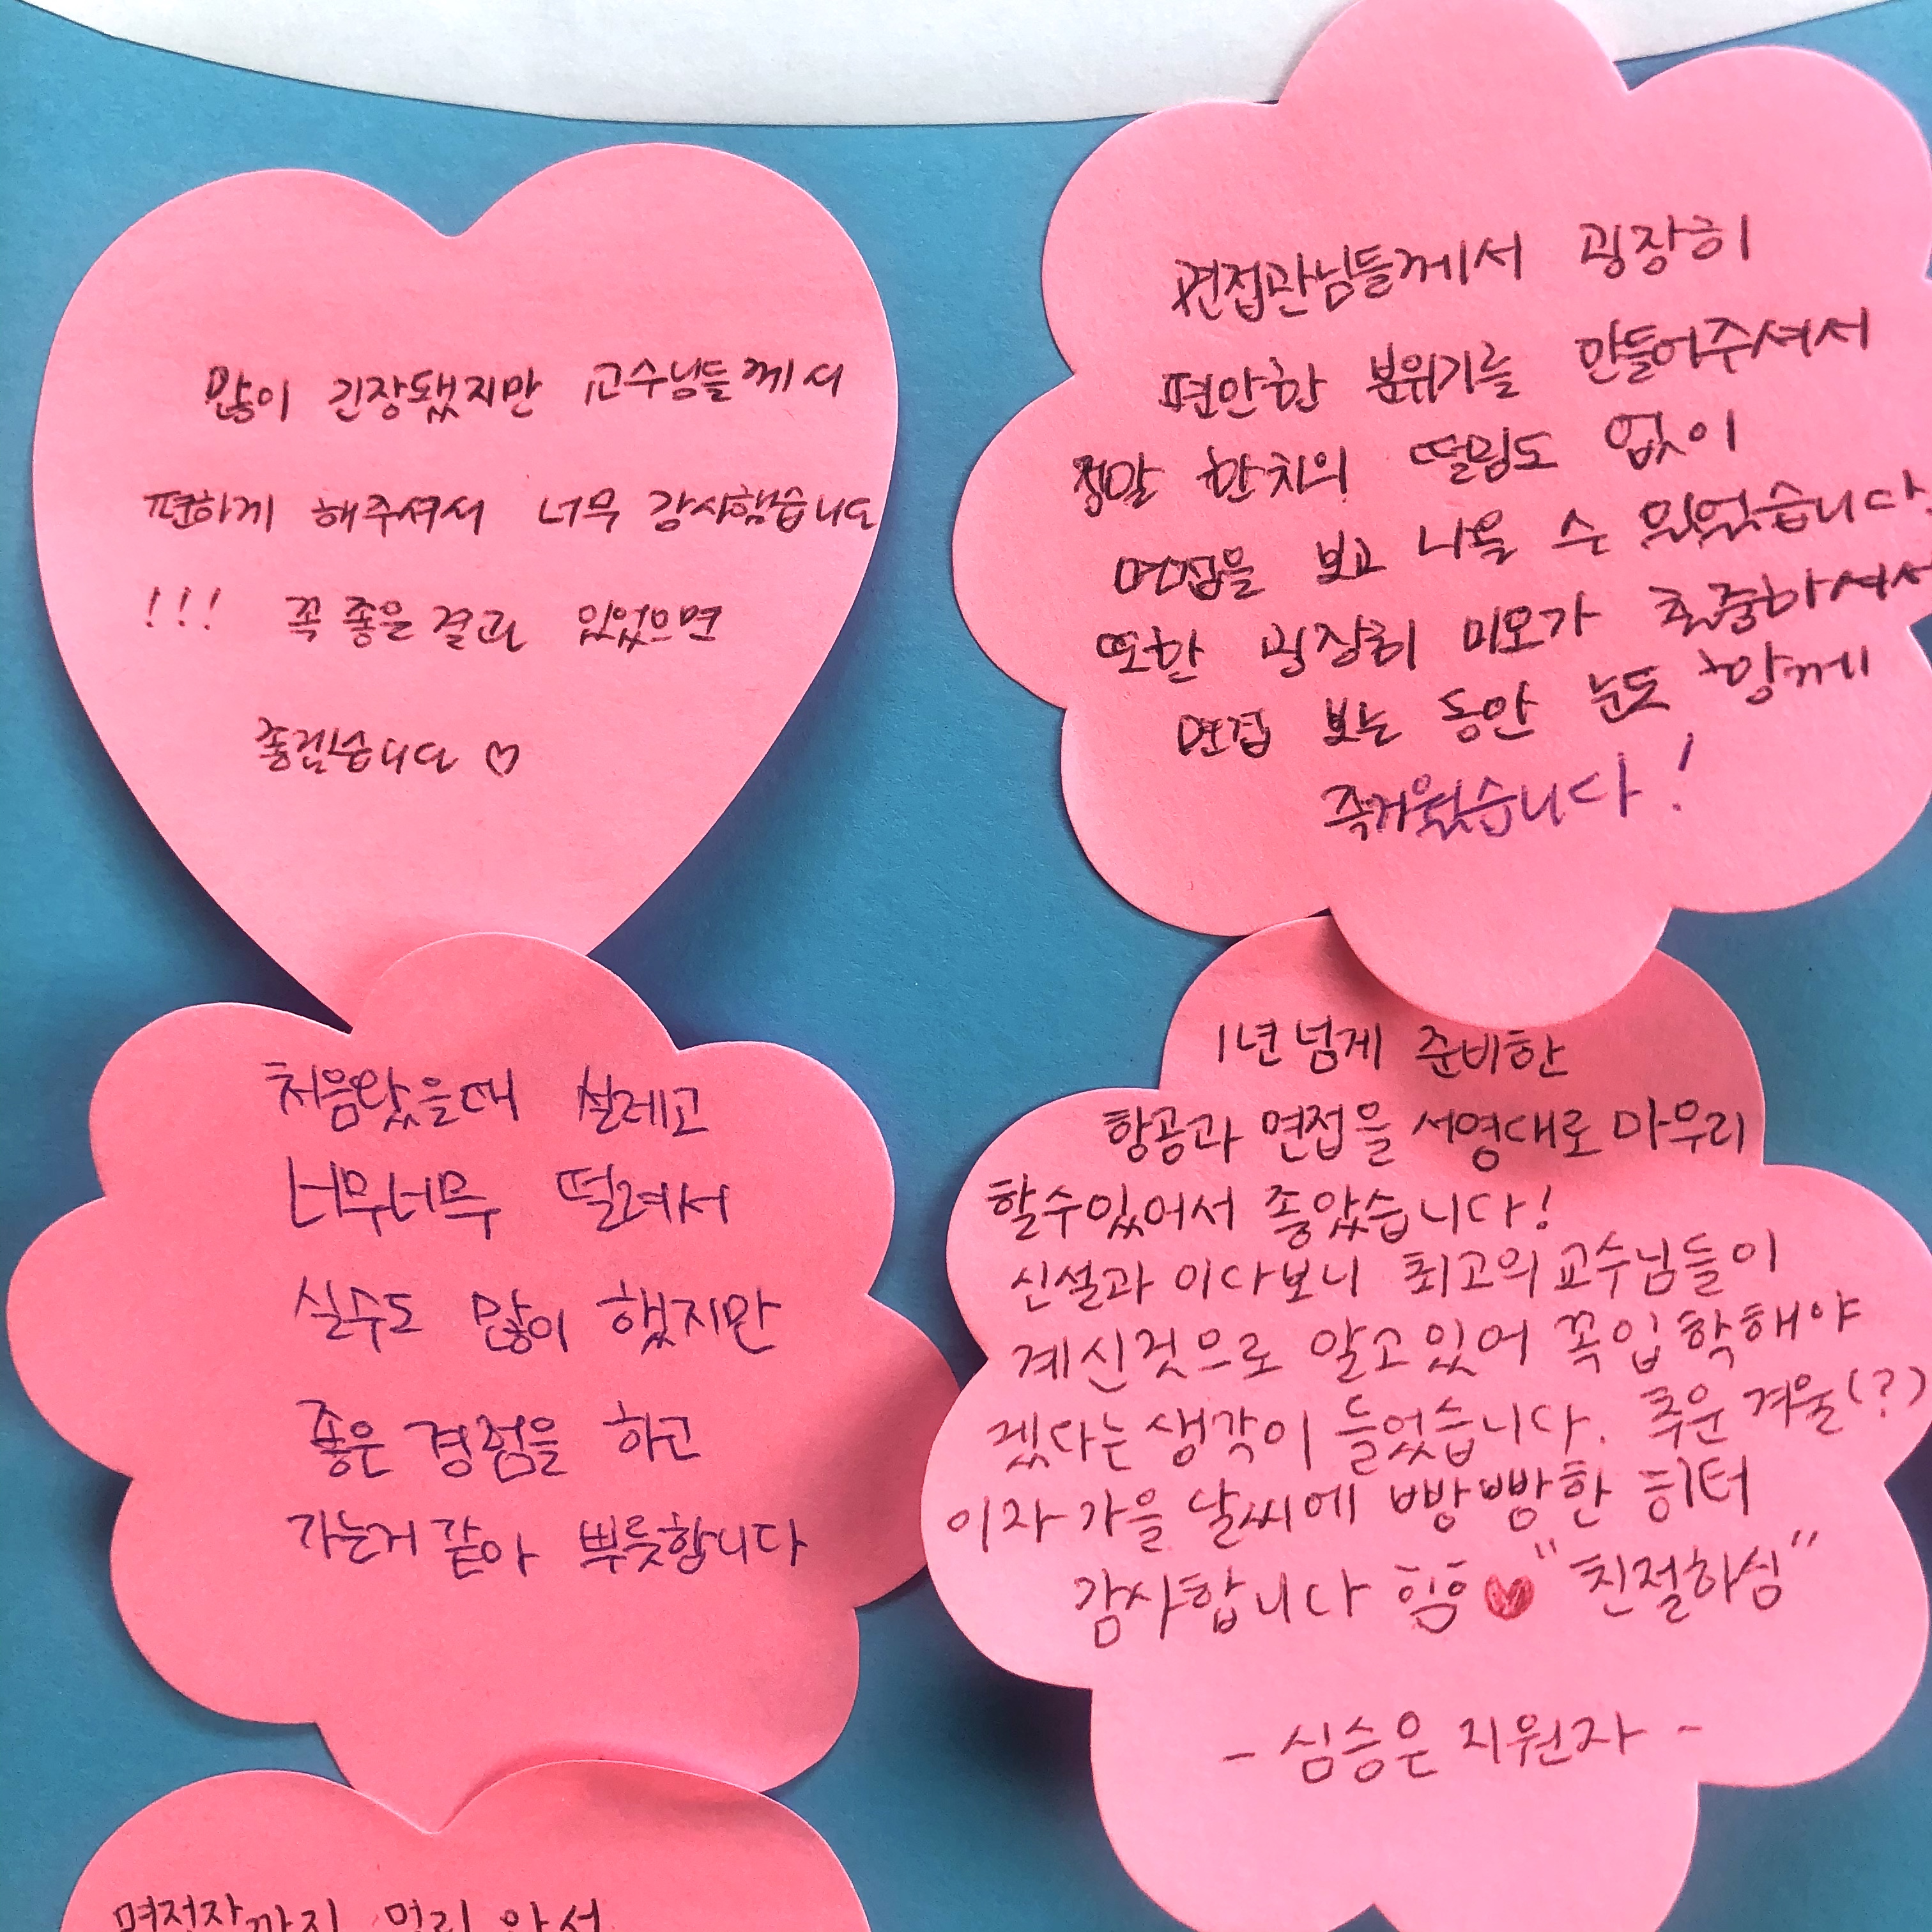 많이 긴장됐지만 교수님들께서
편하게 해주셔서 너무 감사했습니다
!!! 꼭 좋은 결과 있었으면
좋겠습니다 ♡
면접관님들께서 굉장히
편안한 분위기를 만들어주셔서
정말 한치의 떨림도 없이
면접을 보고 나올 수 있었습니다.
또한 굉장히 미모가 출중하셔서
면접 보는 동안 눈도 함께
즐거웠습니다!
처음왔을때 설레고
너무너무 떨려서
실수도 많이 했지만
좋은 경험을 하고
가는거 같아 뿌듯합니다
1년 넘게 준비한
항공과 면접을 서영대로 마무리
할수있어서 좋았습니다!
신설과 이다보니 최고의 교수님들이
계신것으로 알고있어 꼭입학해야
겠다는 생각이 들었습니다. 추운 겨울(?)
이자 가을 날씨에 빵빵한 히터
감사합니다 힘힝 ♥ "친절하심"
- 심승은 지원자 -
면접자까지 멀리 와서